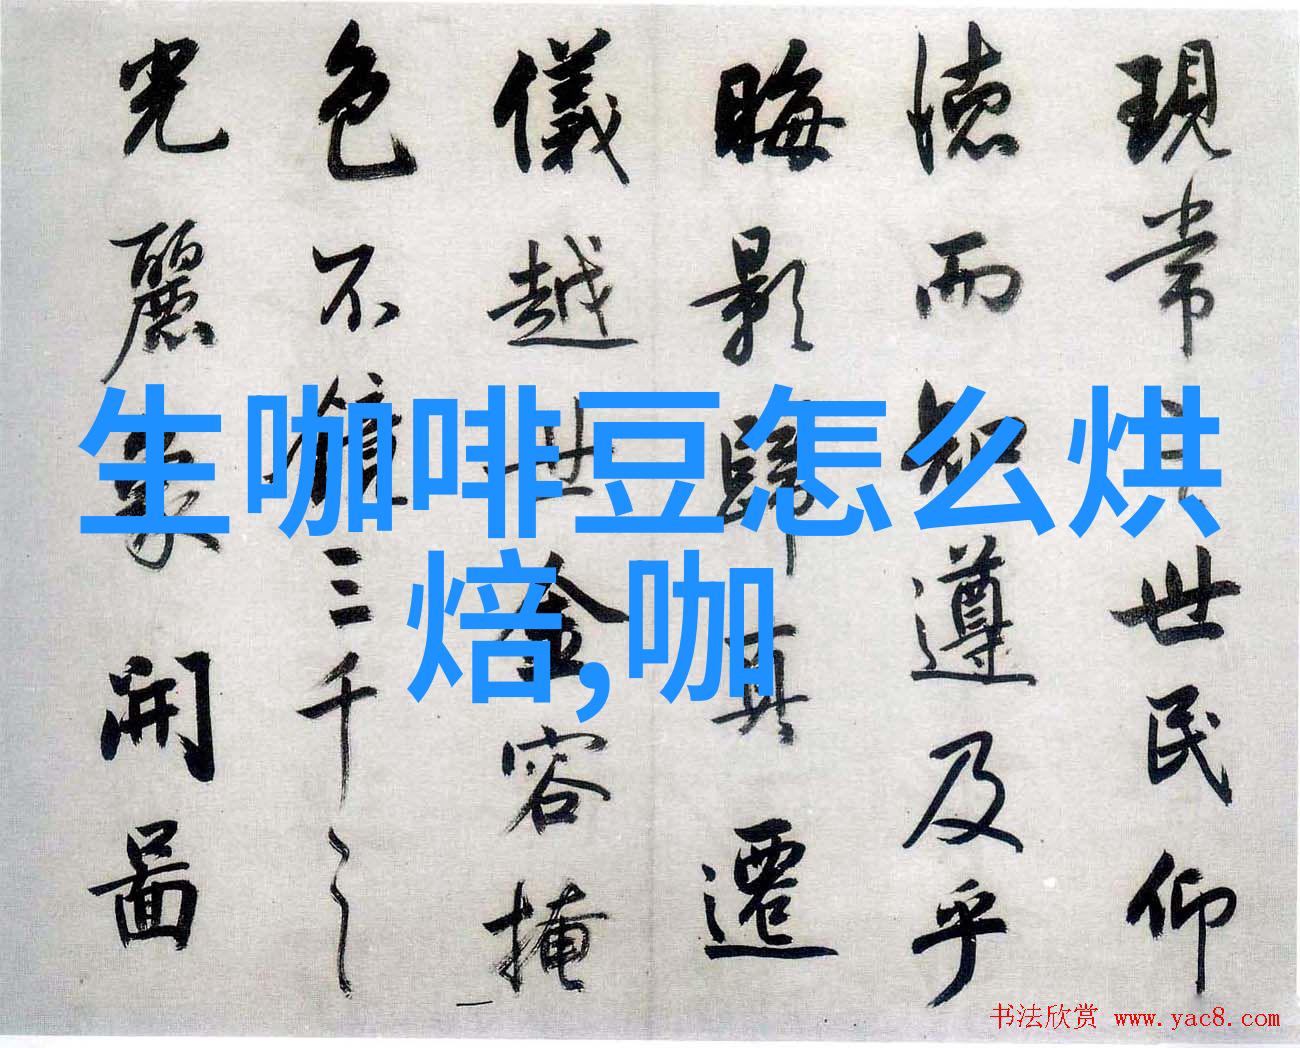 生咖啡豆怎么烘
焙,咖
現常之世民仰
德而知遵及乎
晦影歸真遷
儀越世金容掩
色不鏡三千之
光麗象開圖
书法欣赏 www.yac8.com